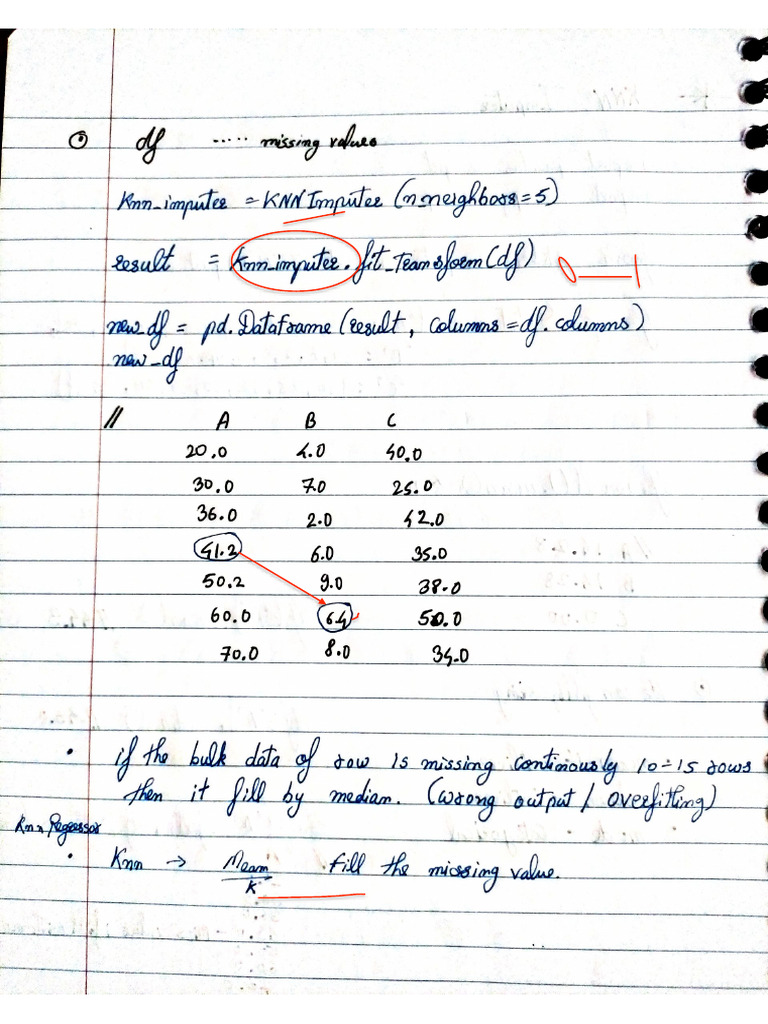 ⊙ df ..... missing values
Knn_imputer = KNNImputer (n_neighbors = 5)
result = Knn_imputer.fit_transform(df)
0 1
new_df = pd.Dataframe (result, columns = df.columns)
new_df
// A B C
20.0 4.0 40.0
30.0 7.0 25.0
36.0 2.0 42.0
41.2 6.0 35.0
50.2 9.0 38.0
60.0 6.4 50.0
70.0 8.0 34.0
• if the bulk data of row is missing continously 10-15 rows
then it fill by median. (wrong output / overfitling)
Knn Regressor
• Knn → Mean/K fill the missing value.